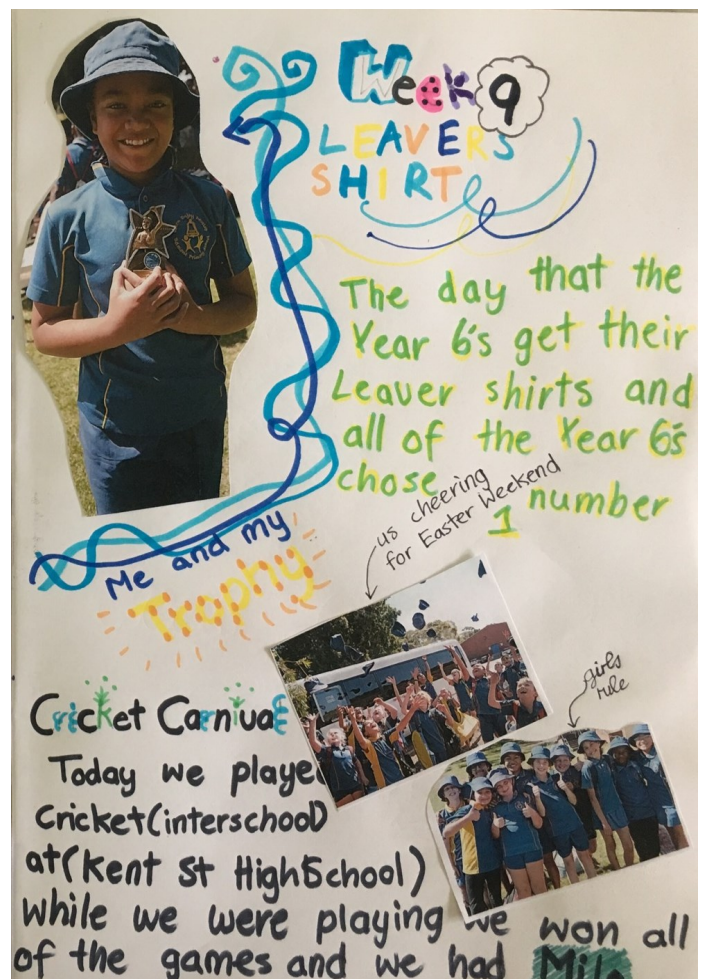 Week 9
LEAVERS
SHIRT
The day that the
Year 6's get their
Leaver shirts and
all of the Year 6's
chose number
1
us cheering
for Easter Weekend
Me and my
Trophy
girls
rule
Cricket Carnival
Today we played
Cricket(interschool)
at(Kent St High School)
while we were playing we won all
of the games and we had Milo